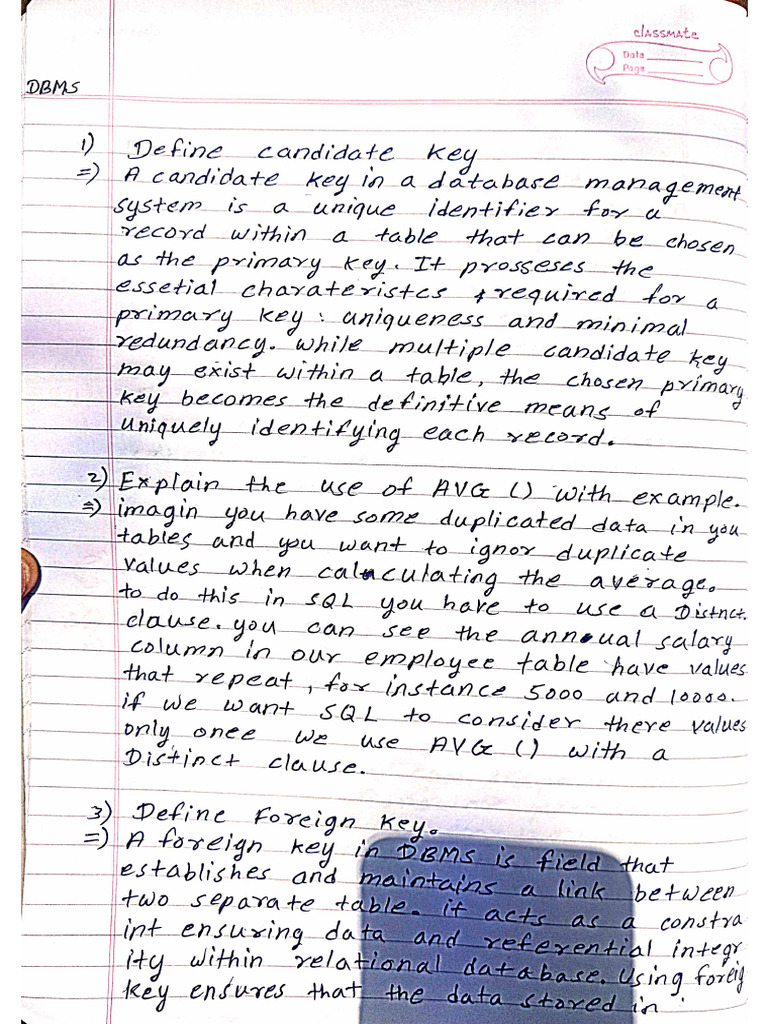 classmate
Date
Page
DBMS
1) Define candidate key
=) A candidate key in a database management
system is a unique identifier for a
record within a table that can be chosen
as the primary key. It prosseses the
essetial charateristcs & required for a
primary key : uniqueness and minimal
redundancy. While multiple candidate key
may exist within a table, the chosen primary
key becomes the definitive means of
uniquely identifying each record.
2) Explain the use of AVG () with example.
=) imagin you have some duplicated data in you
tables and you want to ignor duplicate
values when calculating the average.
to do this in SQL you have to use a Distnct.
clause. you can see the annual salary
column in our employee table have values
that repeat, for instance 5000 and 10000.
if we want SQL to consider there values
only onee we use AVG () with a
Distinct clause.
3) Define Foreign key.
=) A foreign key in DBMS is field that
establishes and maintains a link between
two separate table. it acts as a constra
int ensuring data and referential integr
ity within relational database. Using foreig
key ensures that the data stored in